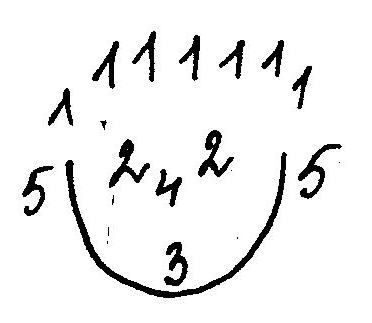 1 1 1 1 1 1 1
2 4 2
5 5
3